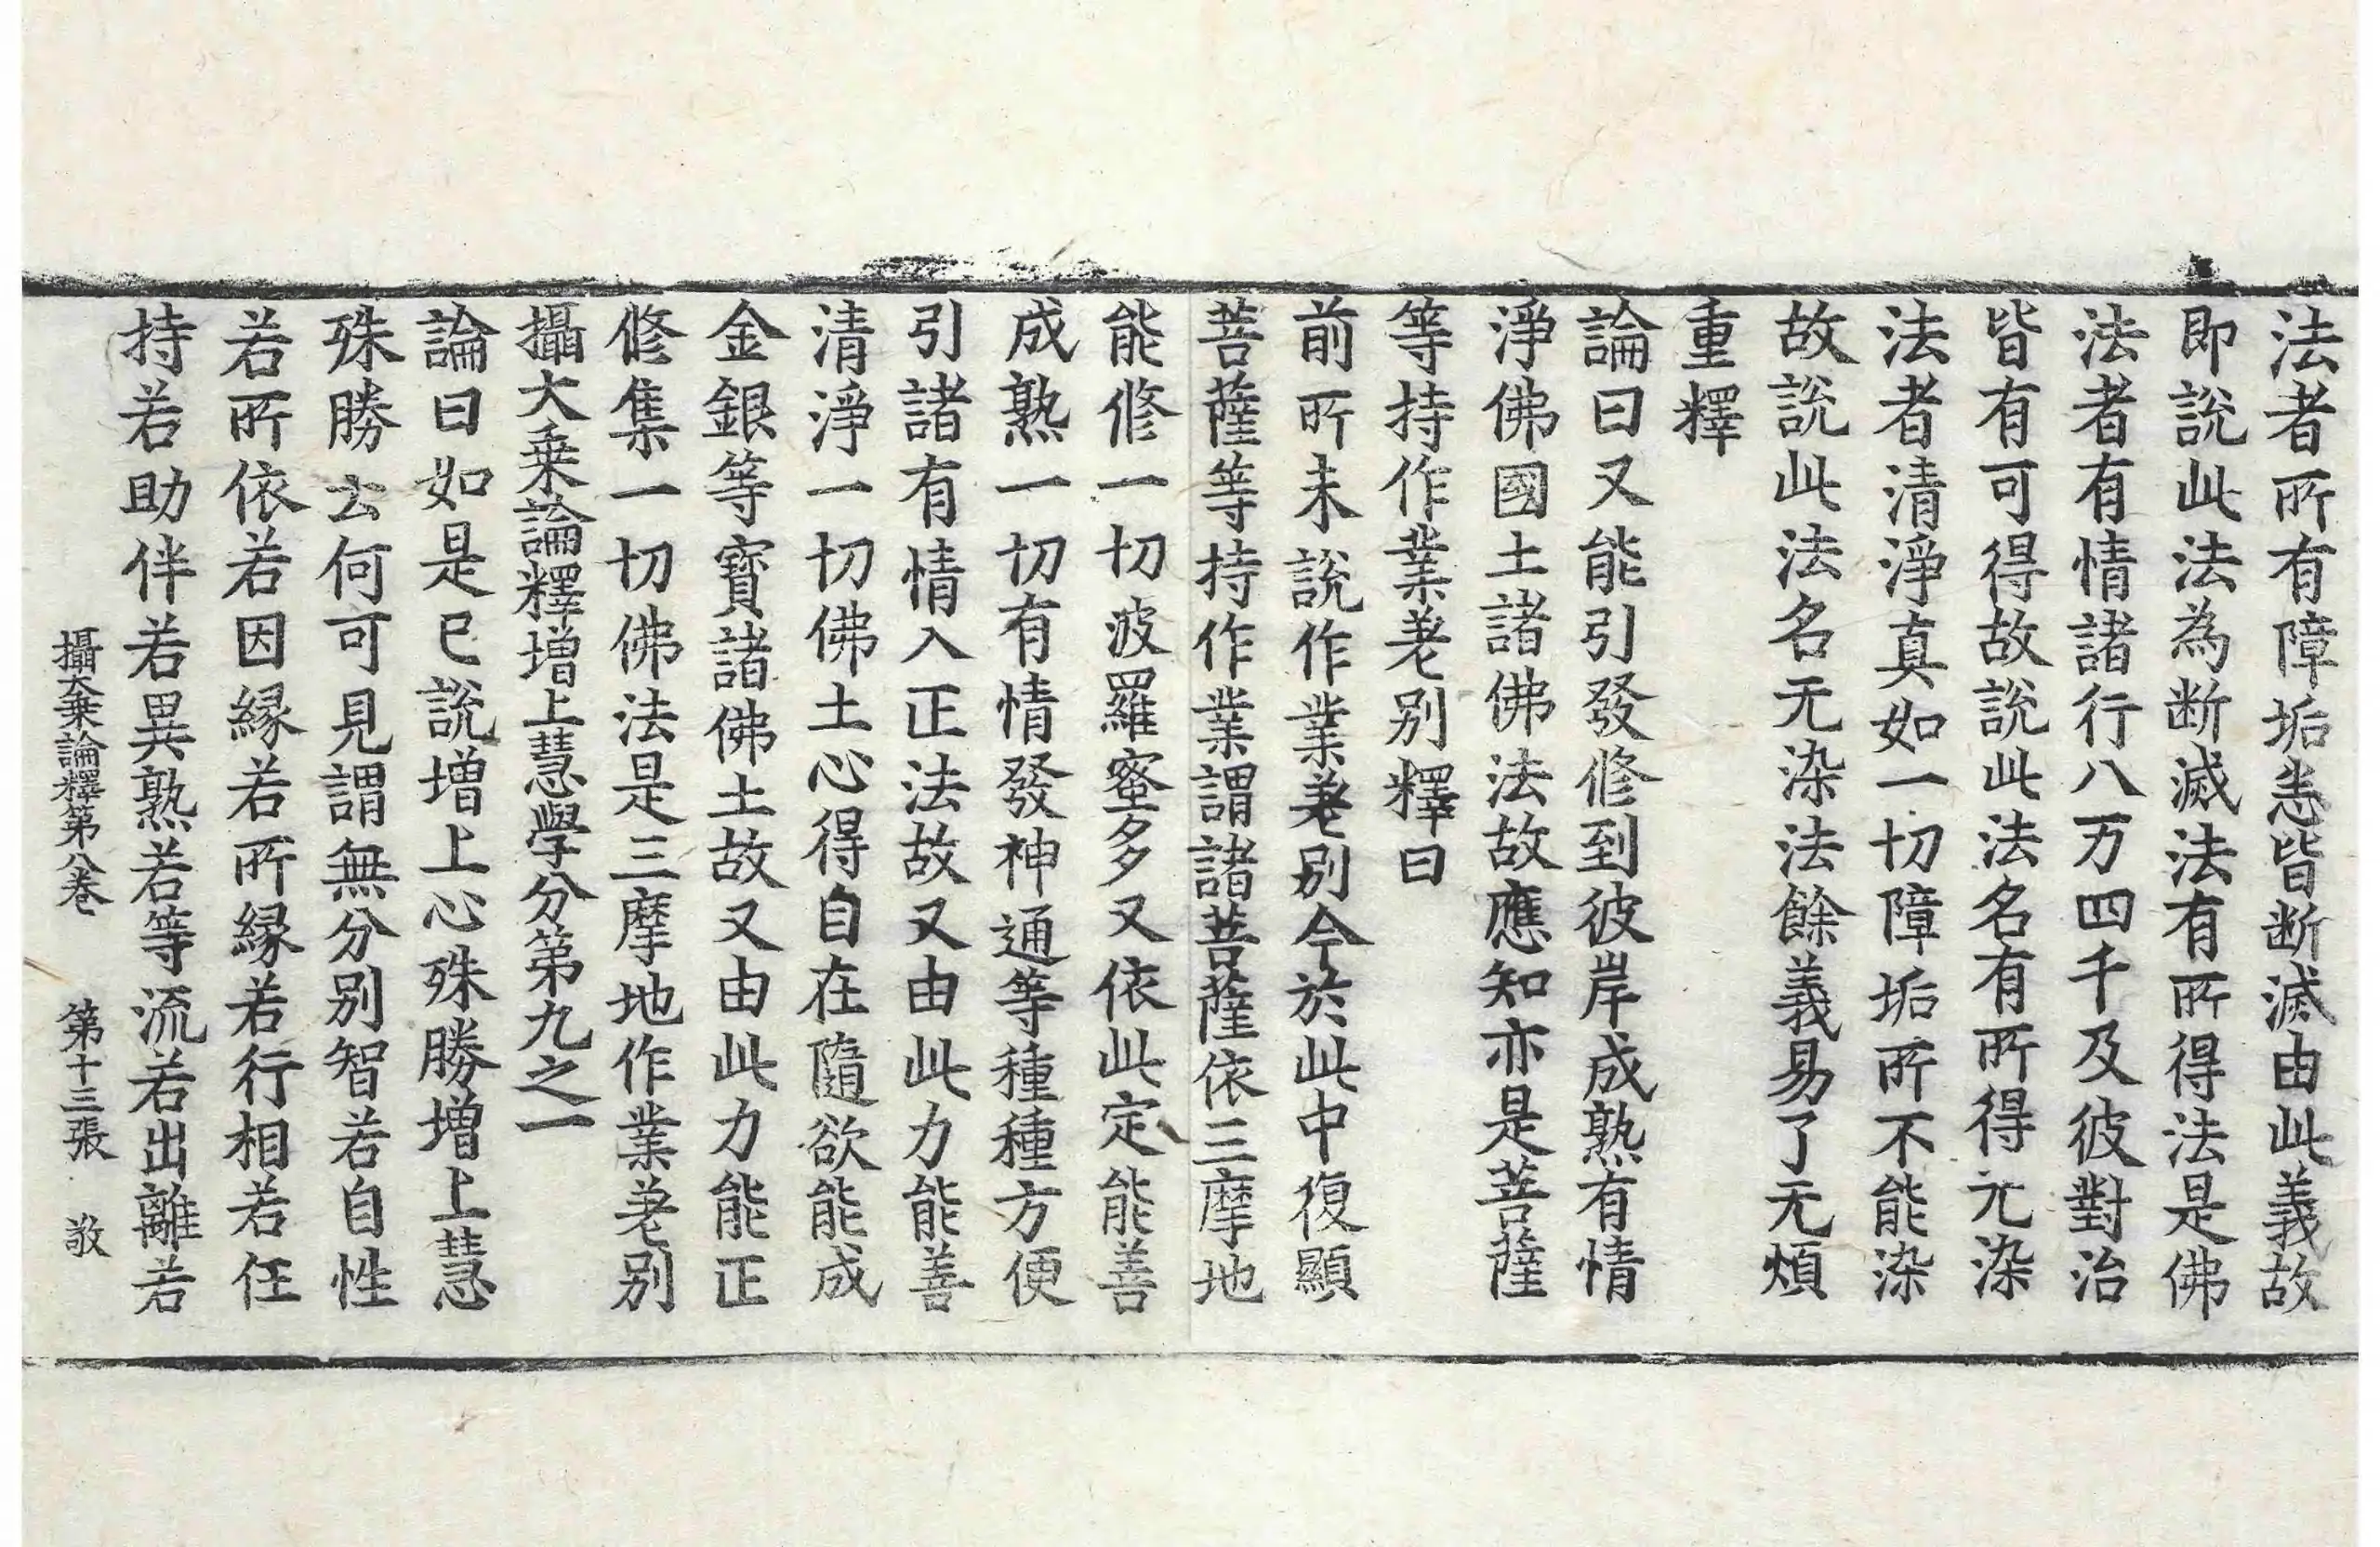 法者所有障垢恚皆断滅由此義故
即說此法為断滅法有所得法是佛
法者有情諸行八万四千及彼對治
皆有可得故說此法名有所得无染
法者清淨真如一切障垢所不能染
故說此法名无染法餘義易了无煩
重釋
論曰又能引發修到彼岸成熟有情
淨佛國土諸佛法故應知亦是菩薩
等持作業差別釋曰
前所未說作業差別今於此中復顯
菩薩等持作業謂諸菩薩依三摩地
能修一切波羅蜜多又依此定能善
成熟一切有情發神通等種種方便
引諸有情入正法故又由此力能善
清淨一切佛土心得自在隨欲能成
金銀等寳諸佛土故又由此力能正
修集一切佛法是三摩地作業差別
攝大乗論釋增上慧學分第九之一
論曰如是已說增上心殊勝增上慧
殊勝云何可見謂無分別智若自性
若所依若因縁若所縁若行相若任
持若助伴若異熟若等流若出離若
攝大乗論釋第八卷 第十三張 敬